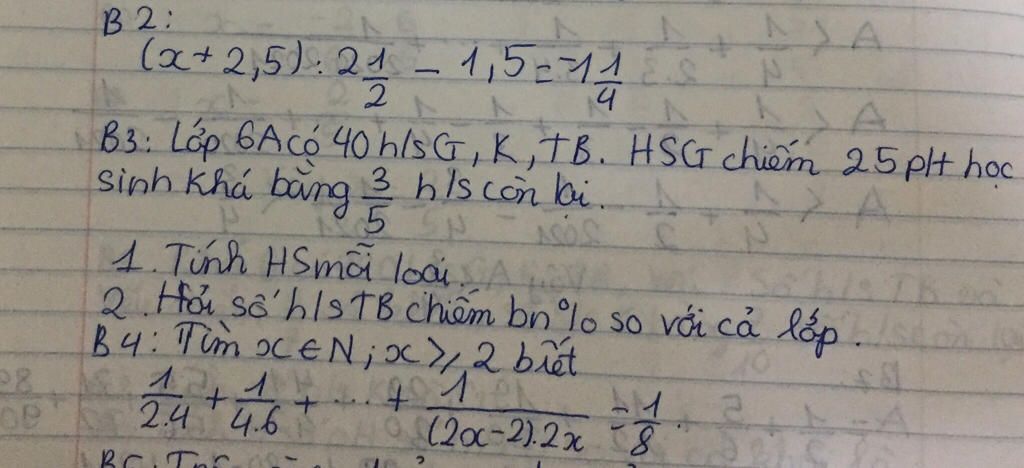 B2:
(x + 2,5) : 2 1/2 - 1,5 = -1 1/4
B3: Lớp 6A có 40 h/s G, K, TB. HSG chiếm 25 pH học
sinh khá bằng 3/5 h/s còn lại.
1. Tính HS mỗi loại.
2. Hỏi số h/s TB chiếm bn % so với cả lớp.
B4: Tìm x ∈ N; x ⩾ 2 biết
1/2.4 + 1/4.6 + ... + 1/(2x-2).2x = 1/8.